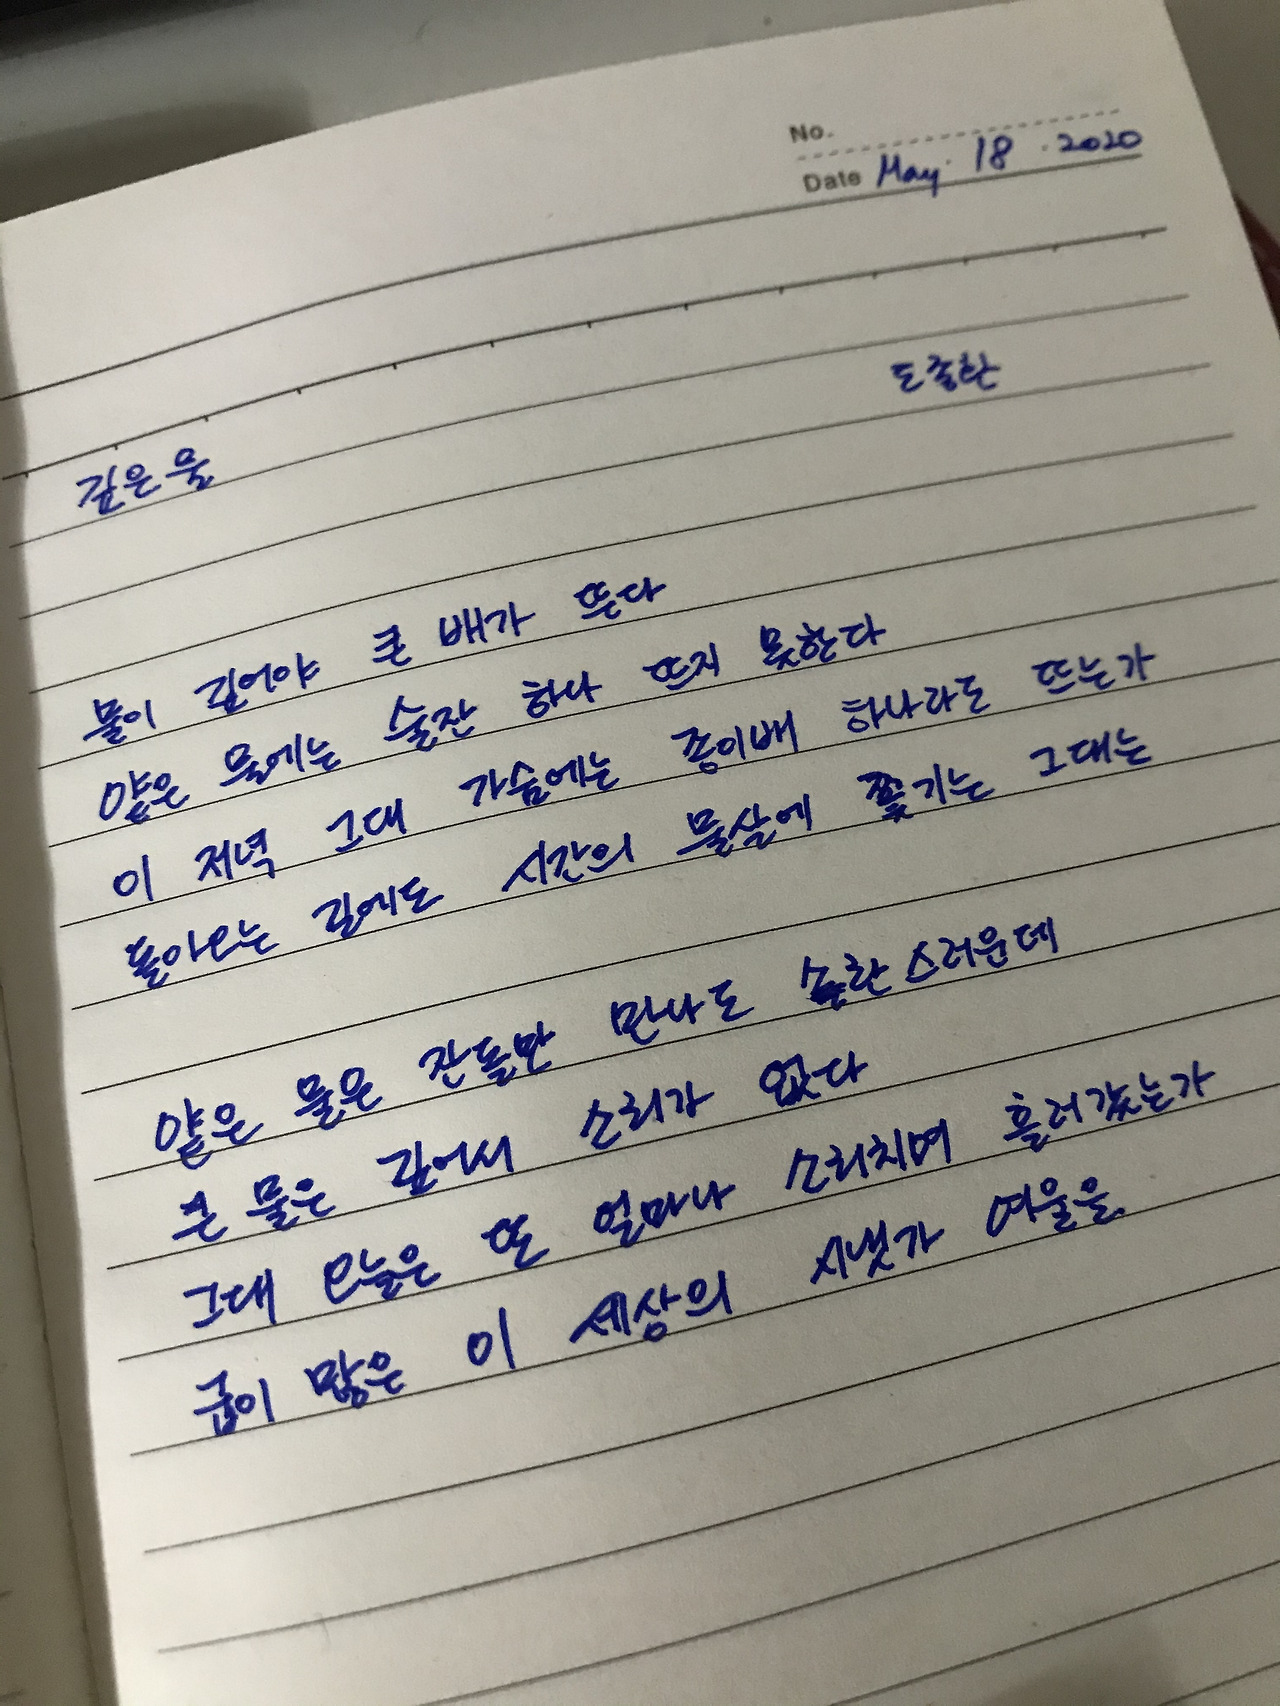 No.
Date May. 18. 2020
도종환
깊은 물
물이 깊어야 큰 배가 뜬다
얕은 물에는 술잔 하나 뜨지 못한다
이 저녁 그대 가슴에는 종이배 하나라도 뜨는가
돌아오는 길에도 시간의 물살에 쫓기는 그대는
얕은 물은 잔돌만 만나도 소란스러운데
큰 물은 깊어서 소리가 없다
그대 오늘은 또 얼마나 소리치며 흘러갔는가
굽이 많은 이 세상의 시냇가 여울을